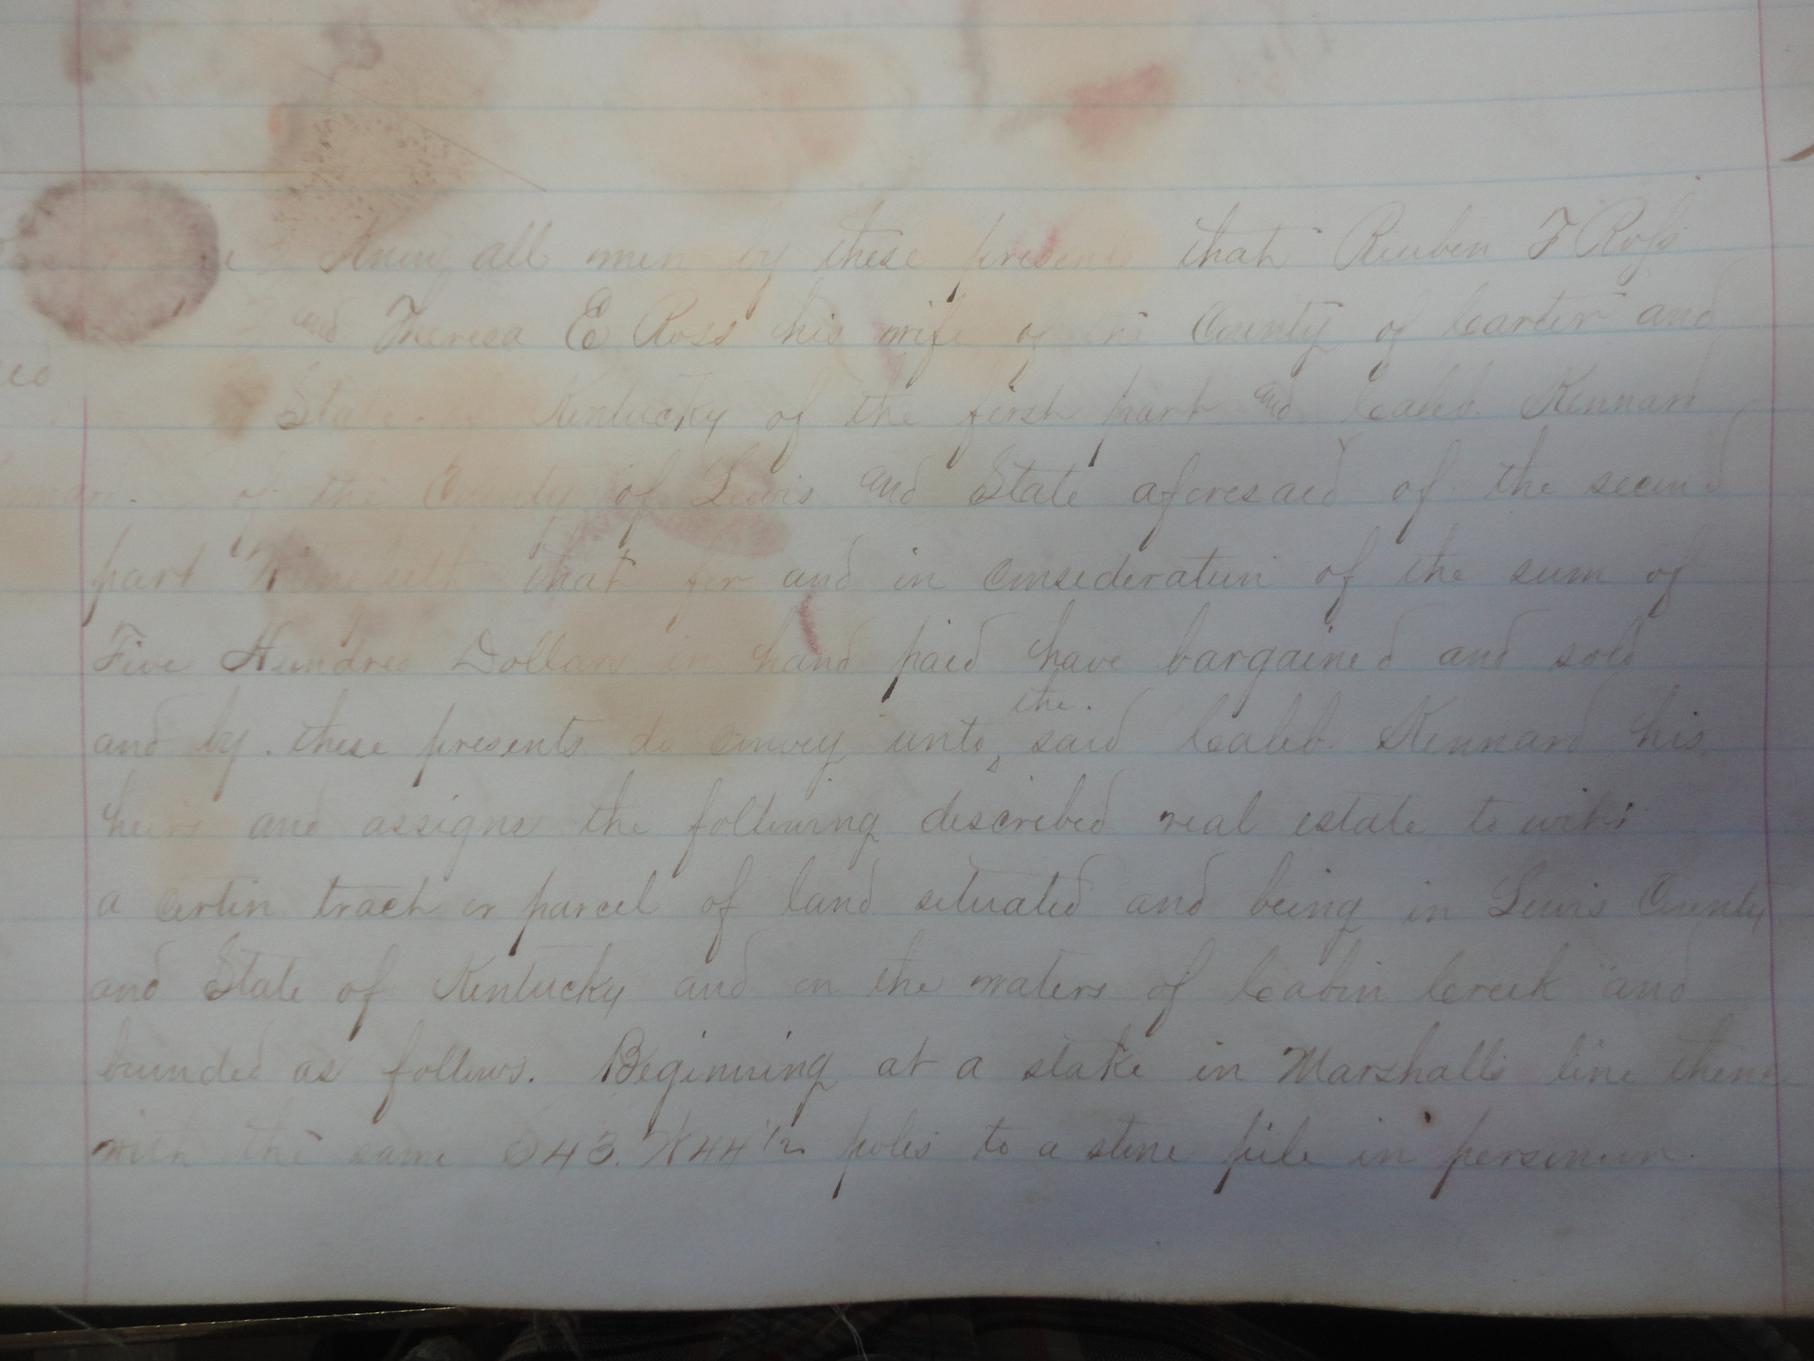 Know all men by these presents that Reuben F Ross
and Theresa E Ross his wife of the County of Carter and
State of Kentucky of the first part and Caleb Kennard
of the County of Lewis and State aforesaid of the second
part Witnesseth that for and in consideration of the sum of
Five Hundred Dollars in hand paid have bargained and sold
and by these presents do convey unto the said Caleb Kennard his
heirs and assigns the following described real estate to wit
a certin tract or parcel of land situated and being in Lewis County
and State of Kentucky and on the waters of Cabin Creek and
bounded as follows. Beginning at a stake in Marshalls line thence
with the same 43 44 1/2 poles to a stone pile in